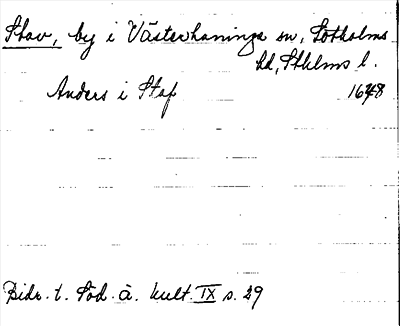 Stav, by i Västerhaninge sn, Sotholms
hd, Sthlms l.
Anders i Staf 1648
Bidr. t. Söd. ä. kult. IX s. 29